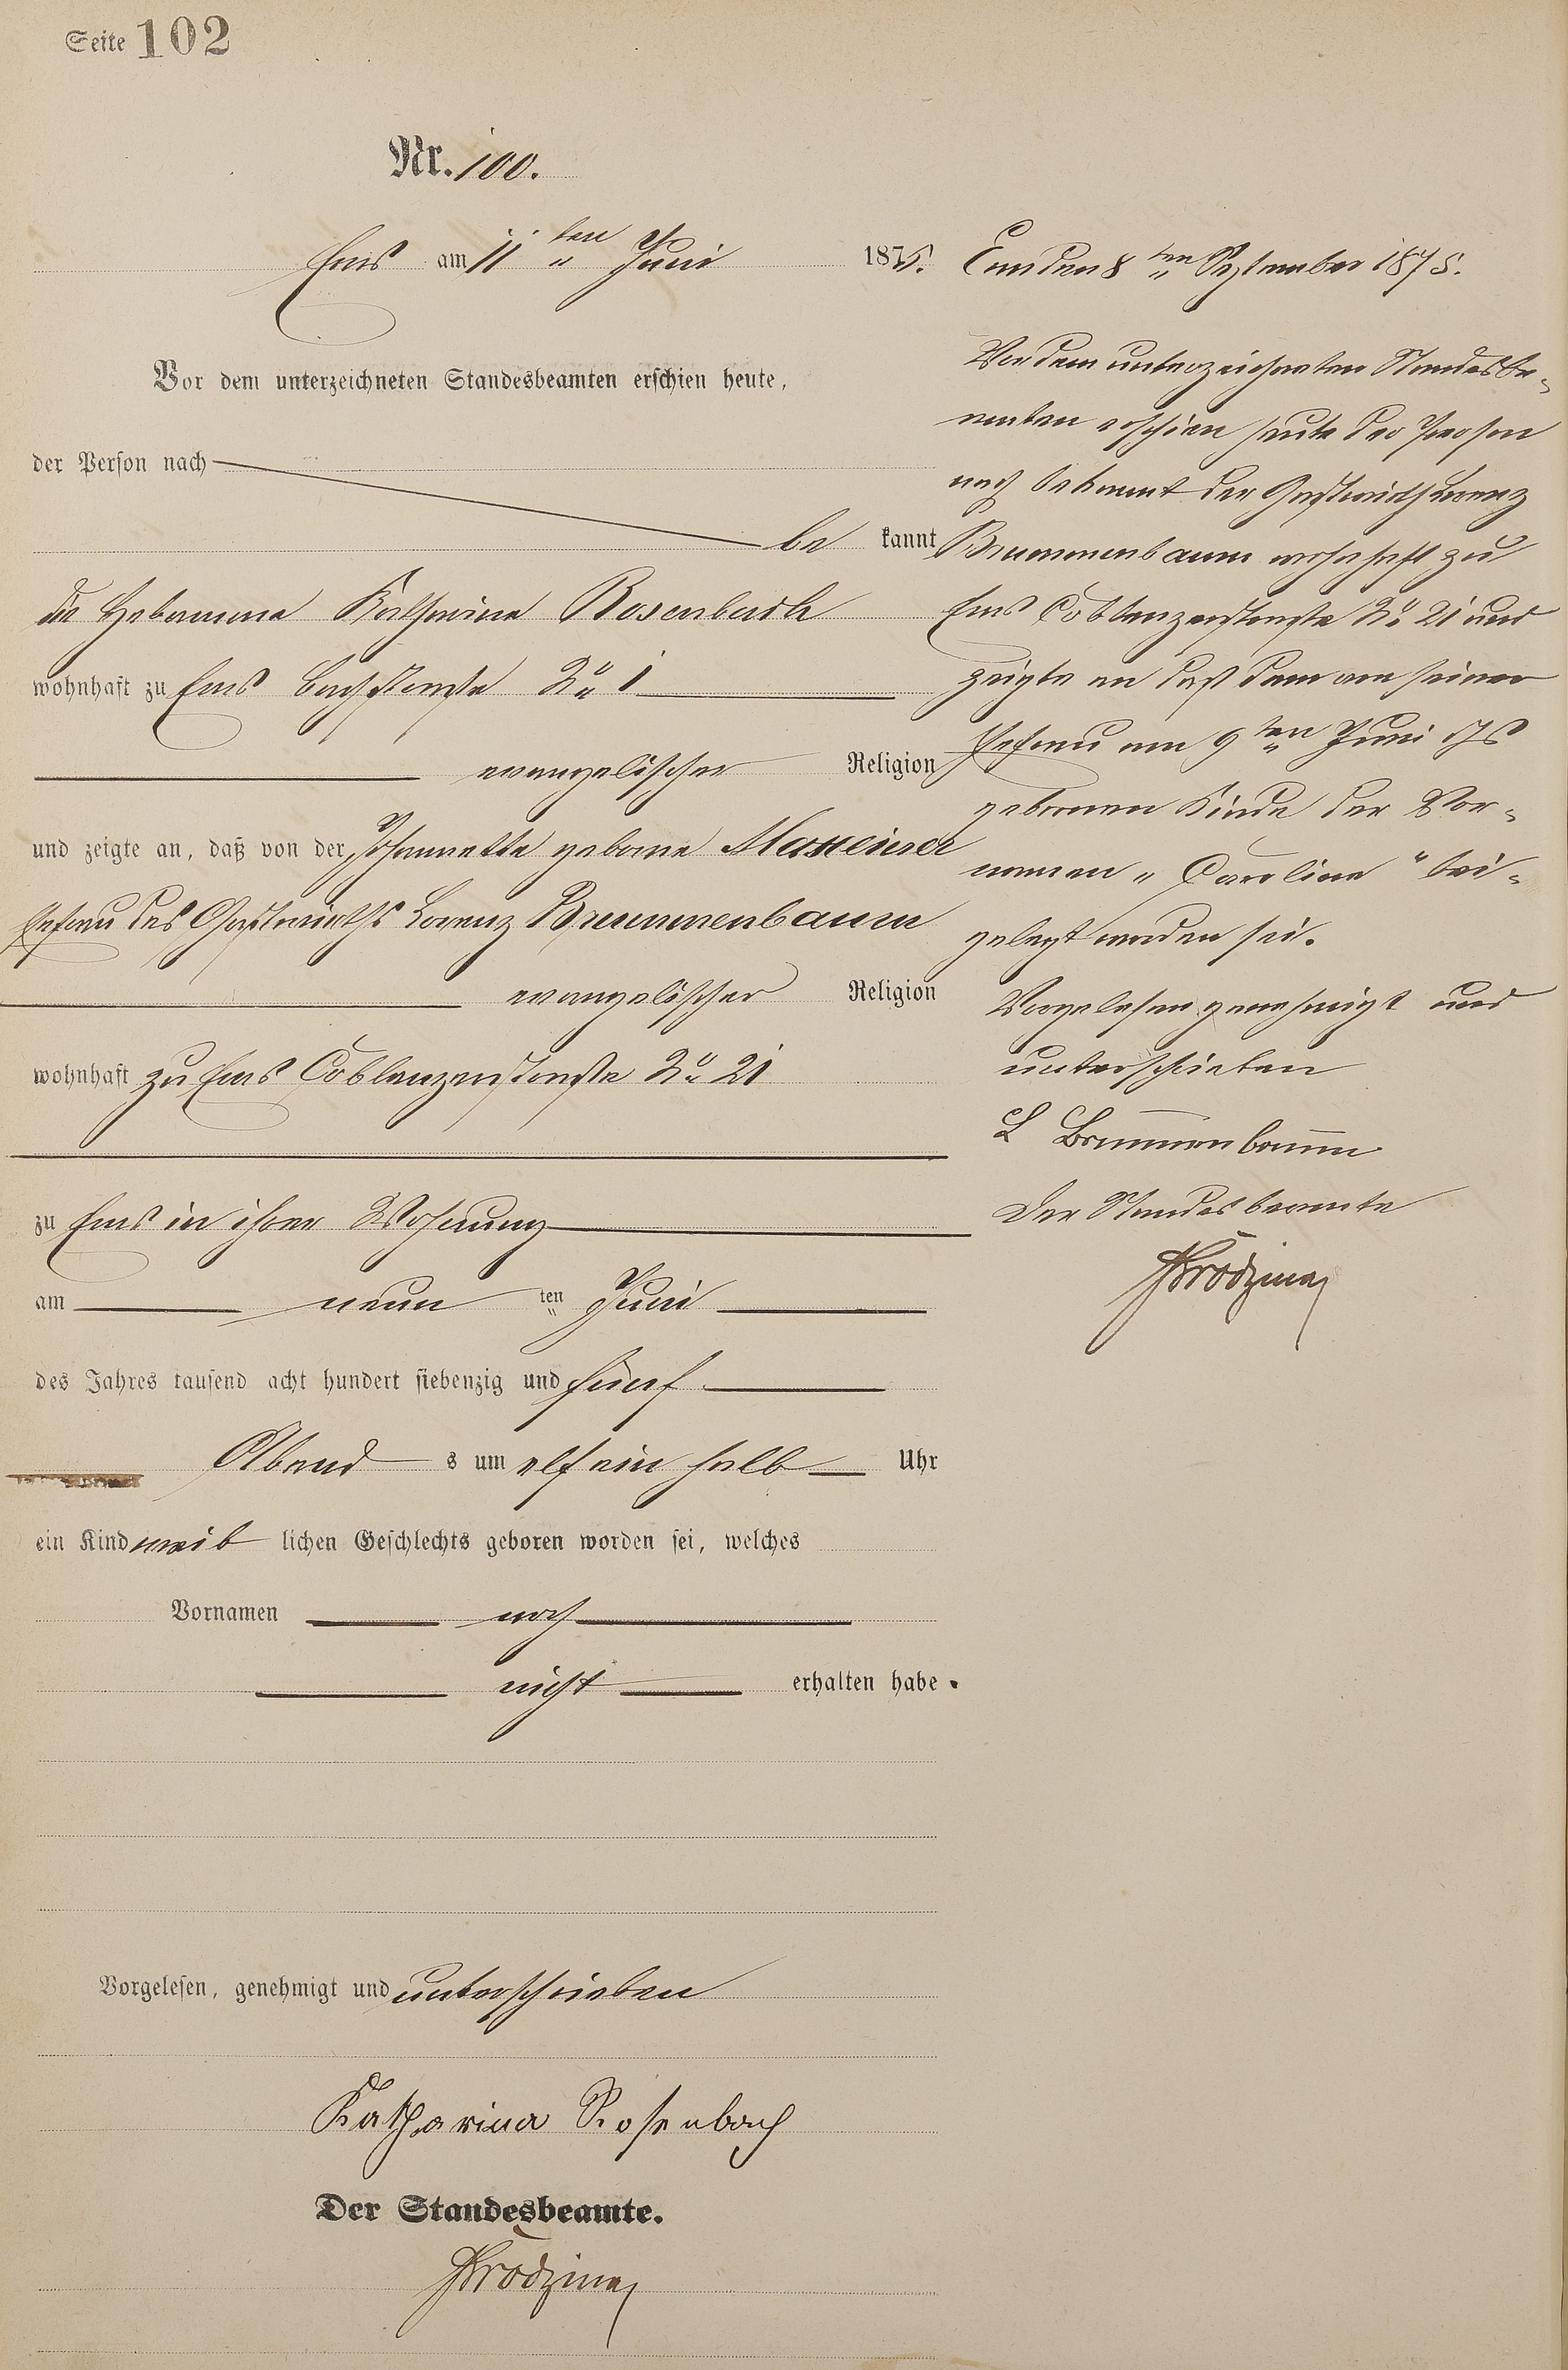 Seite 102
Nr. 100.
Ems am 11ten Juni 1875.
Vor dem unterzeichneten Standesbeamten erschien heute,
der Person nach
be kannt
die Hebamme Katharina Rosenbach
wohnhaft zu Ems Bachstraße No 1
evangelischer Religion
und zeigte an, daß von der Johannette geborne
Ehefrau des Gastwirths Lorenz Brummenbaum
evangelischer Religion
wohnhaft zu Ems Coblenzerstraße No 21
zu Ems in ihrer Wohnung
am neun ten Juni
des Jahres tausend acht hundert siebenzig und fünf
Abend s um elf ein halb Uhr
ein Kind weib lichen Geschlechts geboren worden sei, welches
Vornamen noch
nicht erhalten habe.
Vorgelesen, genehmigt und unterschrieben
Katharina Rosenbach
Der Standesbeamte.
Ems den 8ten September 1875.
Vor dem unterzeichneten Standesbe-
amten erschien heute der Person
nach bekannt der Gastwirth Lorenz
Brummenbaum wohnhaft zu
Ems Coblenzerstraße No 21 und
zeigte an daß dem von seiner
Ehefrau am 9ten Juni d Js
gebornen Kinde der Vor-
namen "Caroline" bei-
gelegt worden sei.
Vorgelesen genehmigt und
unterschrieben
L Brummenbaum
Der Standesbeamte